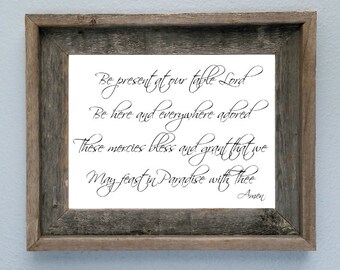 Be present at our table Lord
Be here and everywhere adored
These mercies bless and grant that we
May feast in Paradise with Thee
Amen